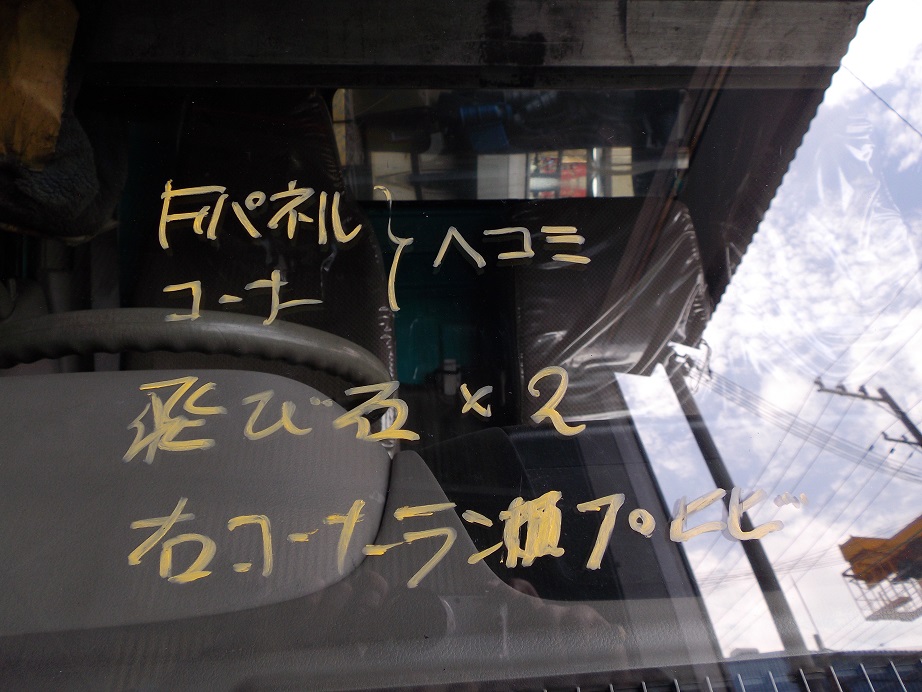 Fパネル } ヘコミ
コーナー
飛び石 × 2
右コーナーランプ ヒビ